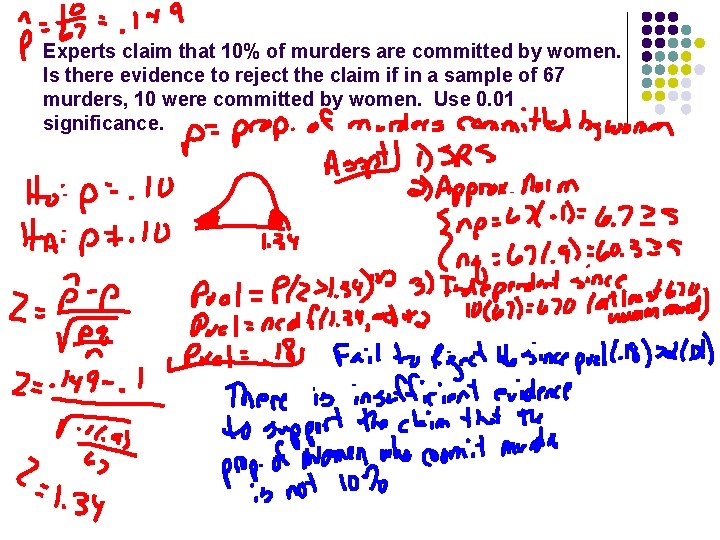 p̂ = 10/67 = .149
Experts claim that 10% of murders are committed by women.
Is there evidence to reject the claim if in a sample of 67
murders, 10 were committed by women. Use 0.01
significance.
p = prop. of murders committed by women
Asspt) 1) SRS
2) Approx. Norm
H₀: p = .10
np = 67(.1) = 6.7 ≥ 5
HA: p ≠ .10
1.34
nq = 67(.9) = 60.3 ≥ 5
3) Independent since
10(67) = 670 (at least 670
Z = p̂ - p / √(pq/n)
Pval = P(Z > 1.34)
Pval =
Pval = .18
Fail to Reject H₀ since pval (.18) > α (.01)
Z = .149 - .1 / √(.1(.9)/67)
There is insufficient evidence
to support the claim that the
prop. of women who commit murder
is not 10%
Z = 1.34